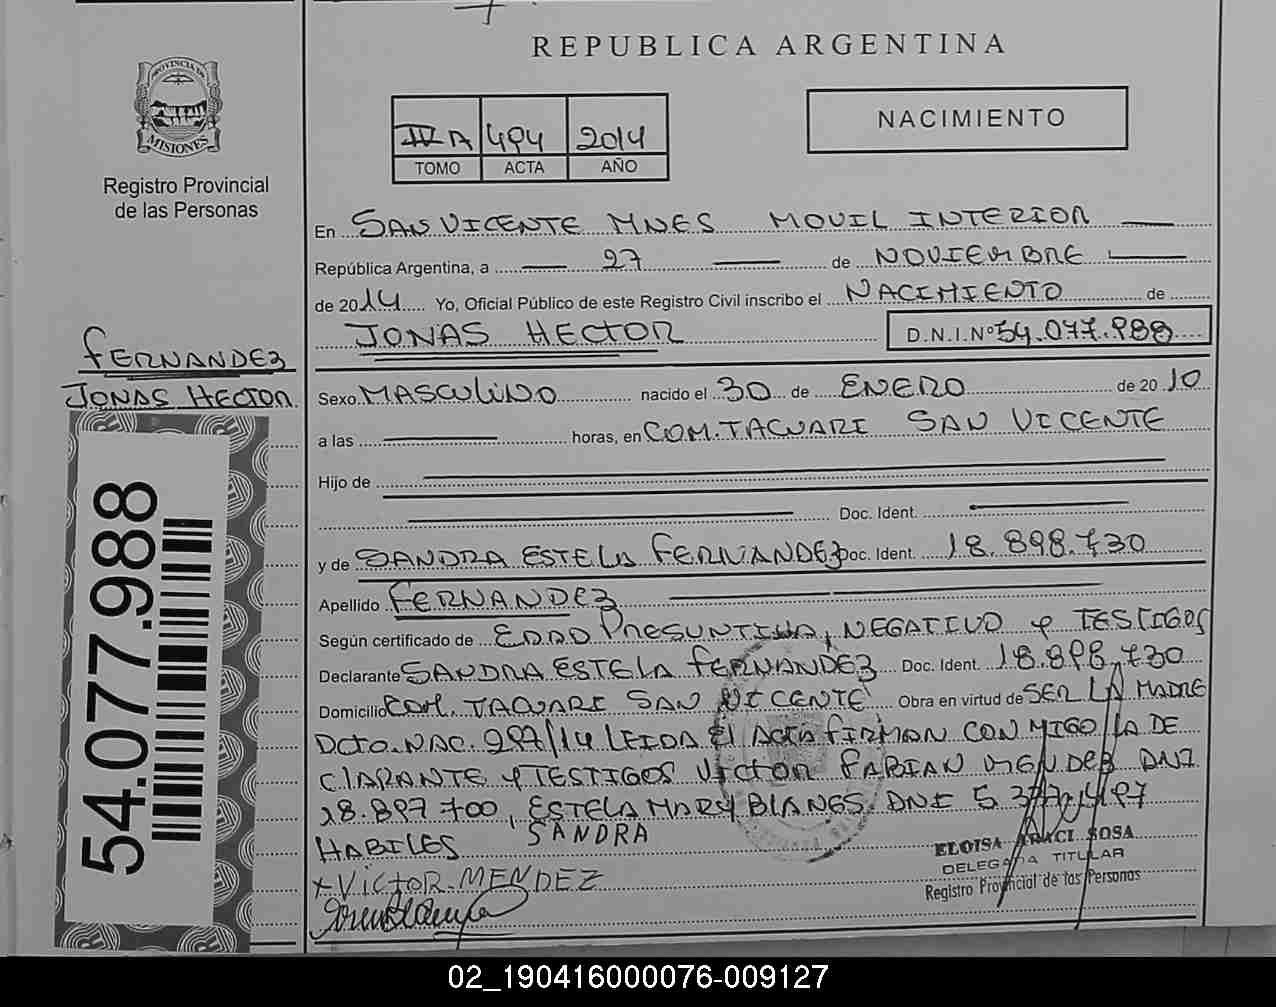 REPUBLICA ARGENTINA
PROVINCIA DE
MISIONES
Registro Provincial
de las Personas
IV A 494 2014
TOMO ACTA AÑO
NACIMIENTO
En SAN VICENTE MNES MOVIL INTERIOR
República Argentina, a 27 de NOVIEMBRE
de 2014 Yo, Oficial Público de este Registro Civil inscribo el NACIMIENTO de
JONAS HECTOR D.N.I.Nº 54.077.988
FERNANDEZ
JONAS HECTOR
54.077.988
Sexo MASCULINO nacido el 30 de ENERO de 2010
a las horas, en COM. TACUARI SAN VICENTE
Hijo de
Doc. Ident.
y de SANDRA ESTELA FERNANDEZ Doc. Ident. 18.898.730
Apellido FERNANDEZ
Según certificado de EDAD PRESUNTIVA, NEGATIVO y TESTIGOS
Declarante SANDRA ESTELA FERNANDEZ Doc. Ident. 18.898.730
Domicilio COM. TACUARI SAN VICENTE Obra en virtud de SER LA MADRE
Dcto. NAC. 297/14 LEIDA El ACTA FIRMAN CONMIGO LA DE
ClARANTE y TESTIGOS Victor FABIAN MENDEZ DNI
18.897 700, ESTELA MARY BLANES. DNI
HABILES SANDRA
x VICTOR MENDEZ
ELOISA ARACI SOSA
DELEGADA TITULAR
Registro Provincial de las Personas
02_190416000076-009127